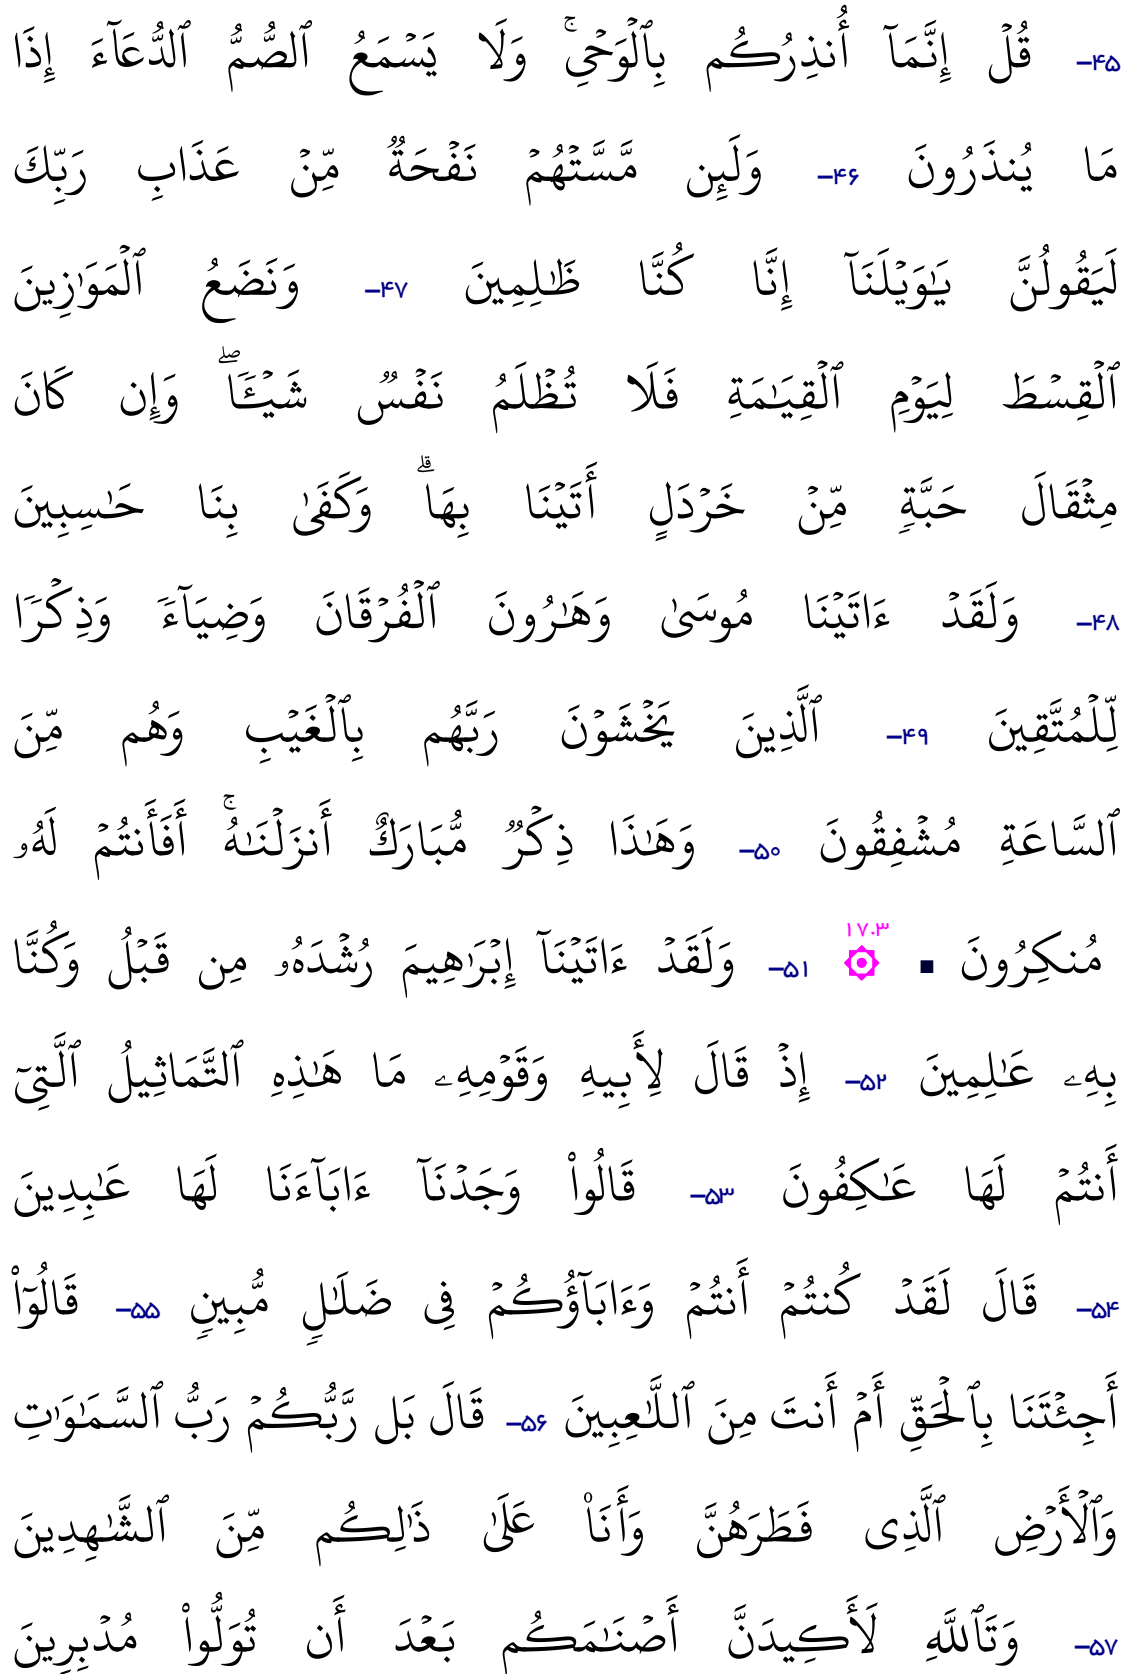 ۴۵- قُلۡ إِنَّمَآ أُنذِرُكُم بِٱلۡوَحۡيِۚ وَلَا يَسۡمَعُ ٱلصُّمُّ ٱلدُّعَآءَ إِذَا
مَا يُنذَرُونَ ۴۶- وَلَئِن مَّسَّتۡهُمۡ نَفۡحَةٞ مِّنۡ عَذَابِ رَبِّكَ
لَيَقُولُنَّ يَٰوَيۡلَنَآ إِنَّا كُنَّا ظَٰلِمِينَ ۴۷- وَنَضَعُ ٱلۡمَوَٰزِينَ
ٱلۡقِسۡطَ لِيَوۡمِ ٱلۡقِيَٰمَةِ فَلَا تُظۡلَمُ نَفۡسٞ شَيۡـٔٗاۖ وَإِن كَانَ
مِثۡقَالَ حَبَّةٖ مِّنۡ خَرۡدَلٍ أَتَيۡنَا بِهَاۗ وَكَفَىٰ بِنَا حَٰسِبِينَ
۴۸- وَلَقَدۡ ءَاتَيۡنَا مُوسَىٰ وَهَٰرُونَ ٱلۡفُرۡقَانَ وَضِيَآءٗ وَذِكۡرٗا
لِّلۡمُتَّقِينَ ۴۹- ٱلَّذِينَ يَخۡشَوۡنَ رَبَّهُم بِٱلۡغَيۡبِ وَهُم مِّنَ
ٱلسَّاعَةِ مُشۡفِقُونَ ۵۰- وَهَٰذَا ذِكۡرٞ مُّبَارَكٌ أَنزَلۡنَٰهُۚ أَفَأَنتُمۡ لَهُۥ
مُنكِرُونَ ▪ ۞ ۱۷.۳ ۵۱- وَلَقَدۡ ءَاتَيۡنَآ إِبۡرَٰهِيمَ رُشۡدَهُۥ مِن قَبۡلُ وَكُنَّا
بِهِۦ عَٰلِمِينَ ۵۲- إِذۡ قَالَ لِأَبِيهِ وَقَوۡمِهِۦ مَا هَٰذِهِ ٱلتَّمَاثِيلُ ٱلَّتِيٓ
أَنتُمۡ لَهَا عَٰكِفُونَ ۵۳- قَالُواْ وَجَدۡنَآ ءَابَآءَنَا لَهَا عَٰبِدِينَ
۵۴- قَالَ لَقَدۡ كُنتُمۡ أَنتُمۡ وَءَابَآؤُكُمۡ فِي ضَلَٰلٖ مُّبِينٖ ۵۵- قَالُوٓاْ
أَجِئۡتَنَا بِٱلۡحَقِّ أَمۡ أَنتَ مِنَ ٱللَّٰعِبِينَ ۵۶- قَالَ بَل رَّبُّكُمۡ رَبُّ ٱلسَّمَٰوَٰتِ
وَٱلۡأَرۡضِ ٱلَّذِي فَطَرَهُنَّ وَأَنَا۠ عَلَىٰ ذَٰلِكُم مِّنَ ٱلشَّٰهِدِينَ
۵۷- وَتَٱللَّهِ لَأَكِيدَنَّ أَصۡنَٰمَكُم بَعۡدَ أَن تُوَلُّواْ مُدۡبِرِينَ